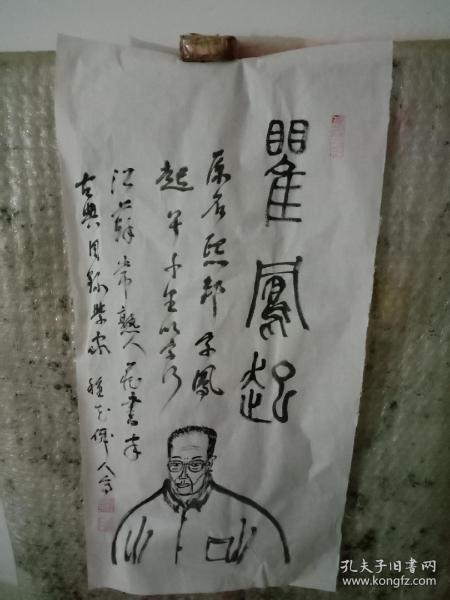 瞿鳳起
原名熙邦 字鳳
起 早年以字行
江蘇常熟人 藏書家
古典目錄學家
孔夫子旧书网
www.kongfz.com